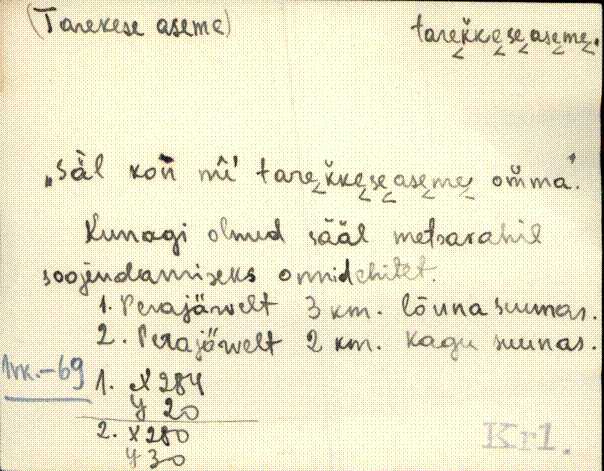 (Tarekese aseme) tarekkeseaseme.
„säl kon mi tarekkeseaseme omma".
Kunagi olnud sääl metsarahil
soojendamiseks onnid ehitet.
1. Perajärvelt 3 km. lõuna suunas.
2. Perajärvelt 2 km. kagu suunas.
1. X 284
Y 20
2. X 280
Y 30
Kr1.